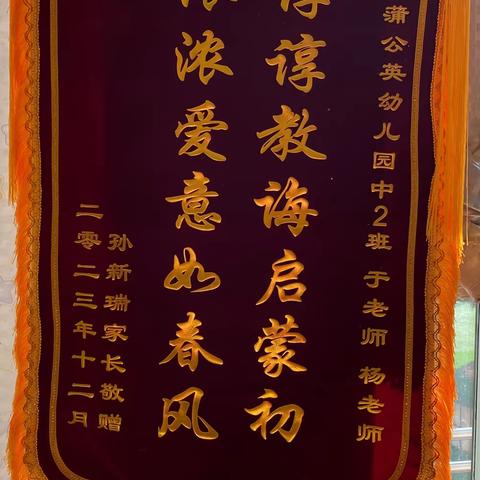 蒲公英幼儿园中2班 于老师 杨老师
谆谆教诲启蒙初
浓浓爱意如春风
孙新瑞家长敬赠
二零二三年十二月